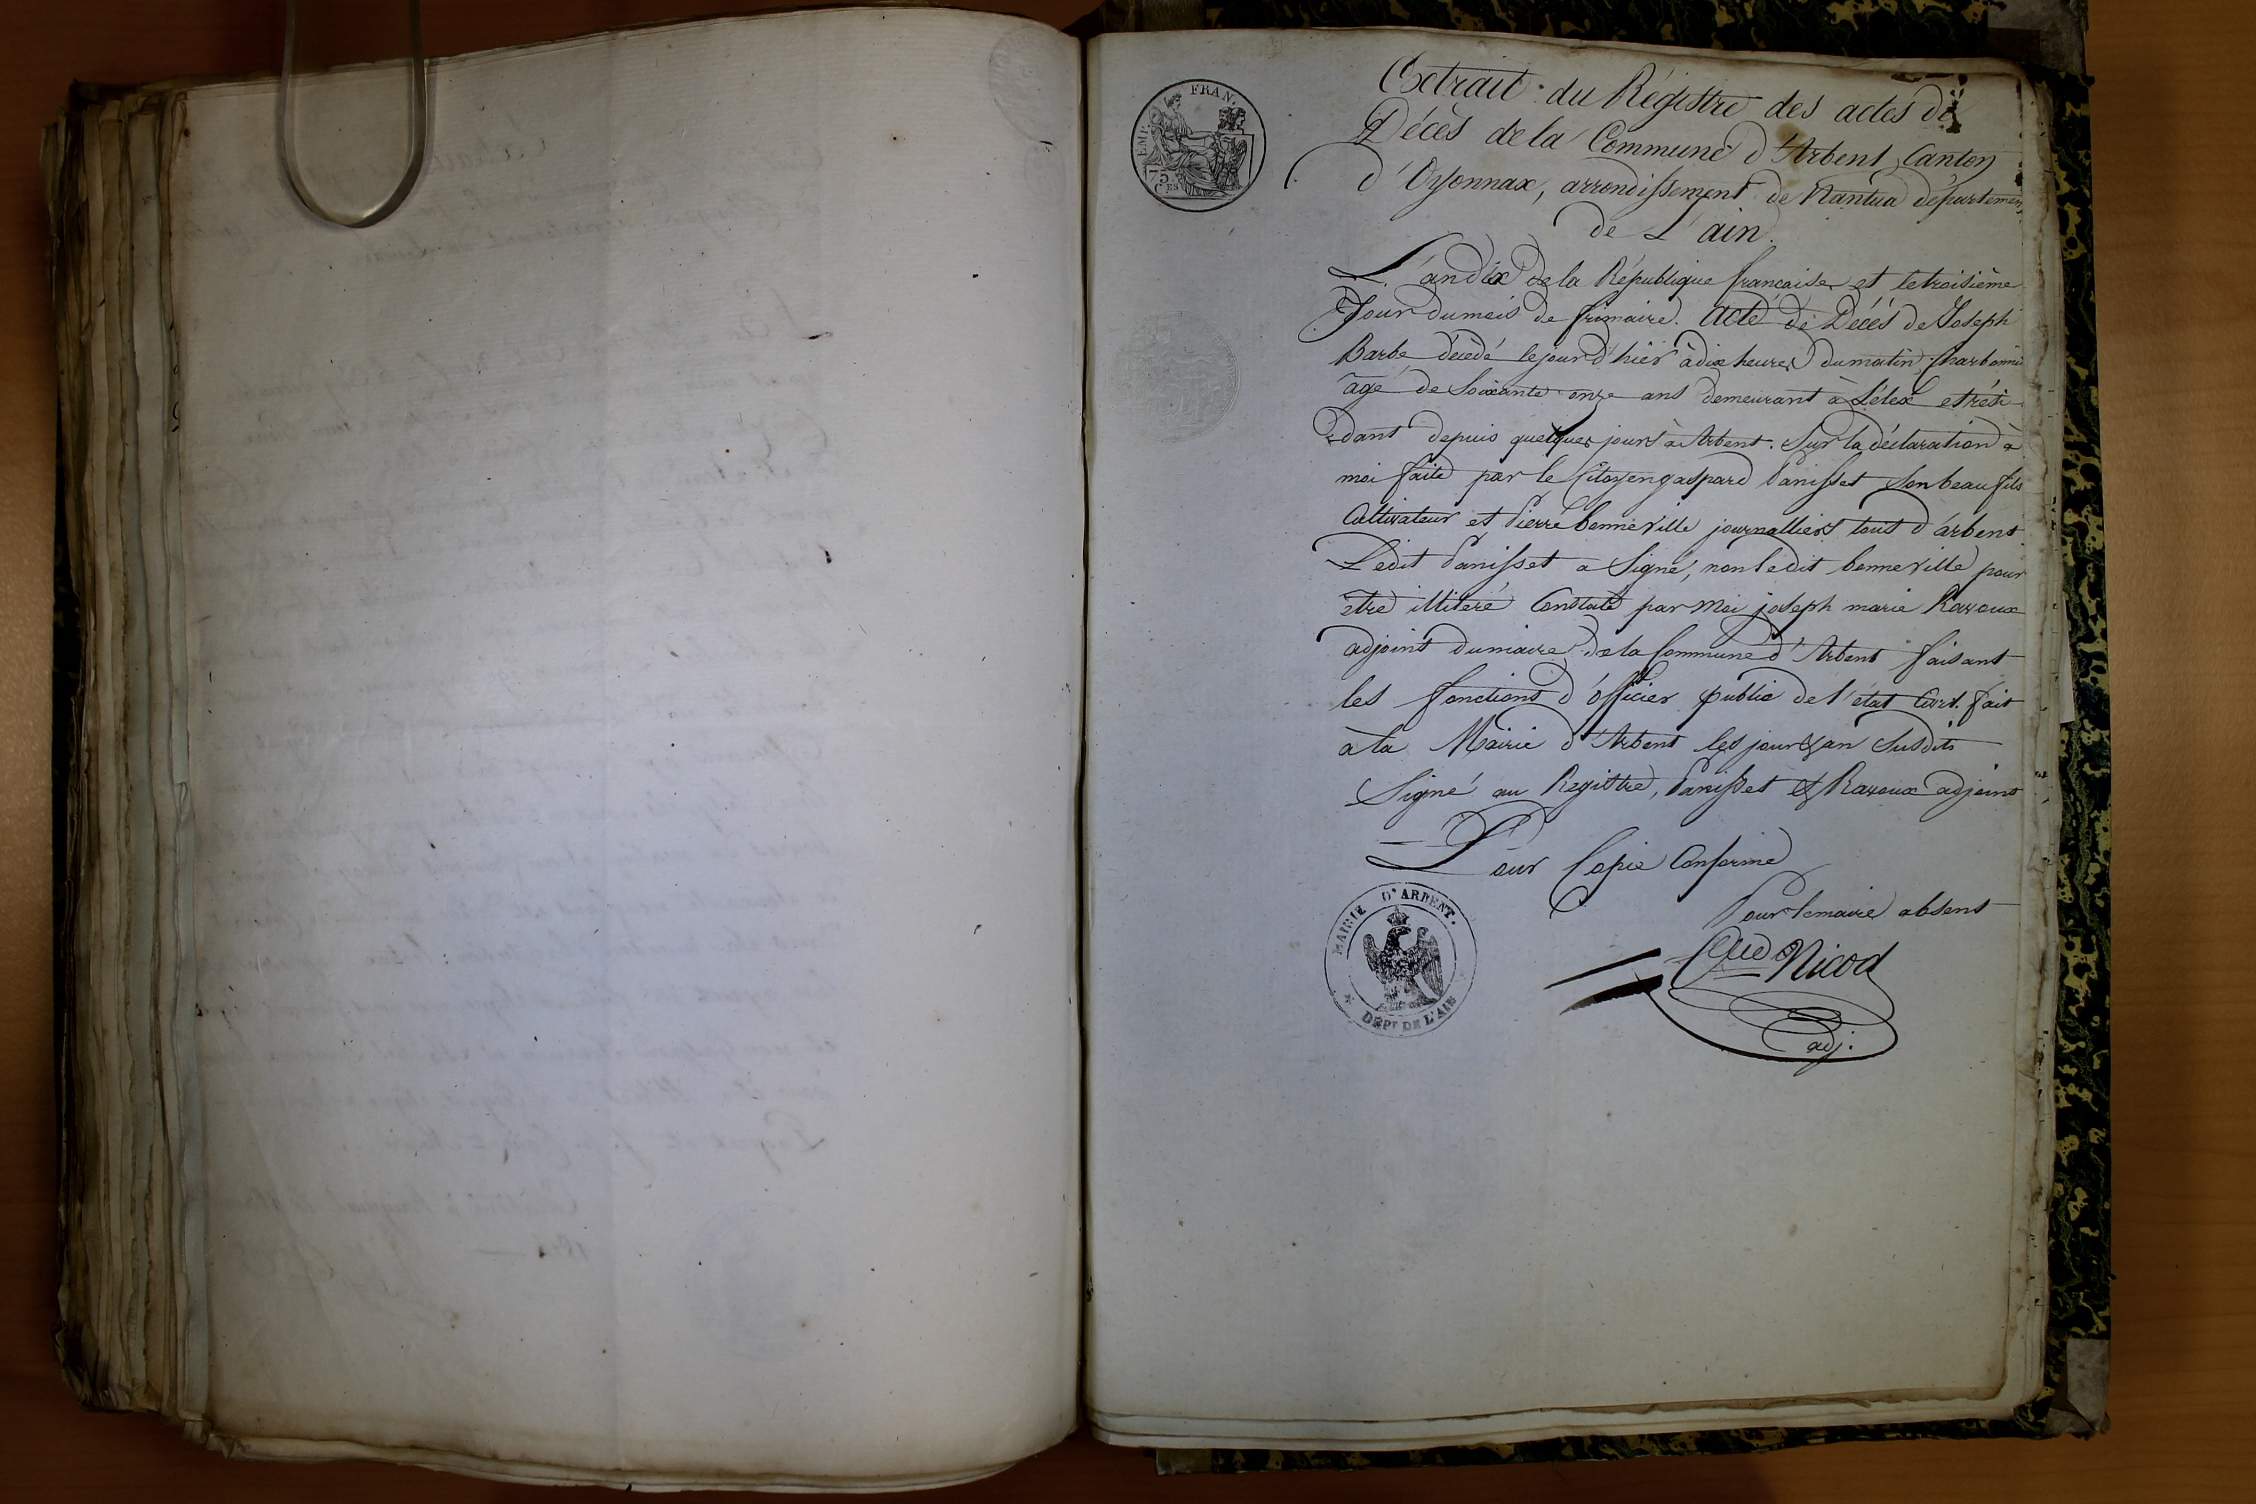 EMP. FRAN.
75
CES
Extrait du Régistre des actes de
Décès de la Commune d'Arbent, Canton
d'Oyonnax, arrondissement de Nantua département
de L'ain.
L'an dix de la République française et le troisième
Jour du mois de frimaire. Acte de Décés de Joseph
Barbe décédé le jour d'hier à dix heures du matin, Charbonnié
agé de Soixante onze ans demeurant à Lélex et rési
dant depuis quelques jours à Arbent. Sur la déclaration à
moi faite par le Citoyen gaspard Panisset Son beau fils
Cultivateur et Pierre benneville journalliers tous d'arbent
Ledit Panisset a Signé, non ledit benneville pour
etre illiteré Constaté par moi joseph marie Ravoux
adjoint du maire de la Commune d'Arbent faisant
les fonctions d'officier public de l'état Civil. fait
à la Mairie d'Arbent les jour & an Susdits
Signé au Registre, Panisset & Ravoux adjoint
Pour Copie Conforme
Pour le maire absent
MAIRIE D'ARBENT.
DEPT DE L'AIN
Nicod
adj.